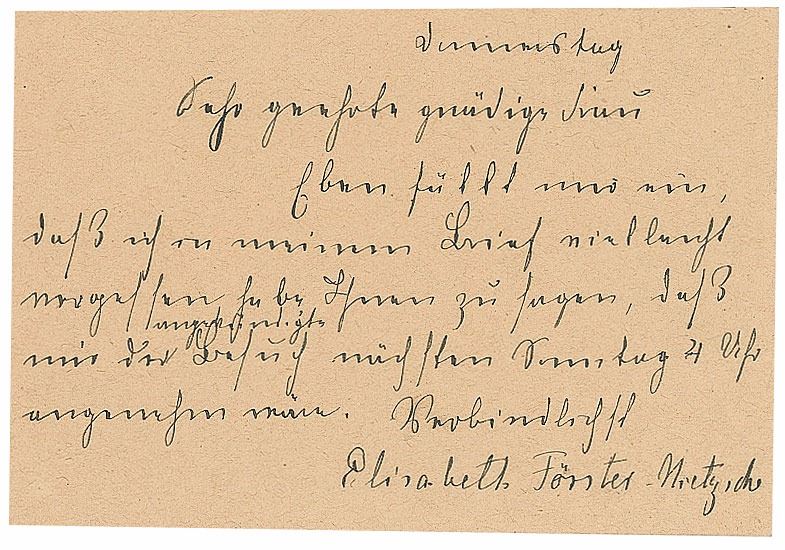 Donnerstag
Sehr geehrte gnädige Frau
Eben fällt mir ein,
daß ich in meinem Brief vielleicht
vergessen habe Ihnen zu sagen, daß
angekündigte
mir der Besuch nächsten Sonntag 4 Uhr
angenehm wäre. Verbindlichst
Elisabeth Förster-Nietzsche